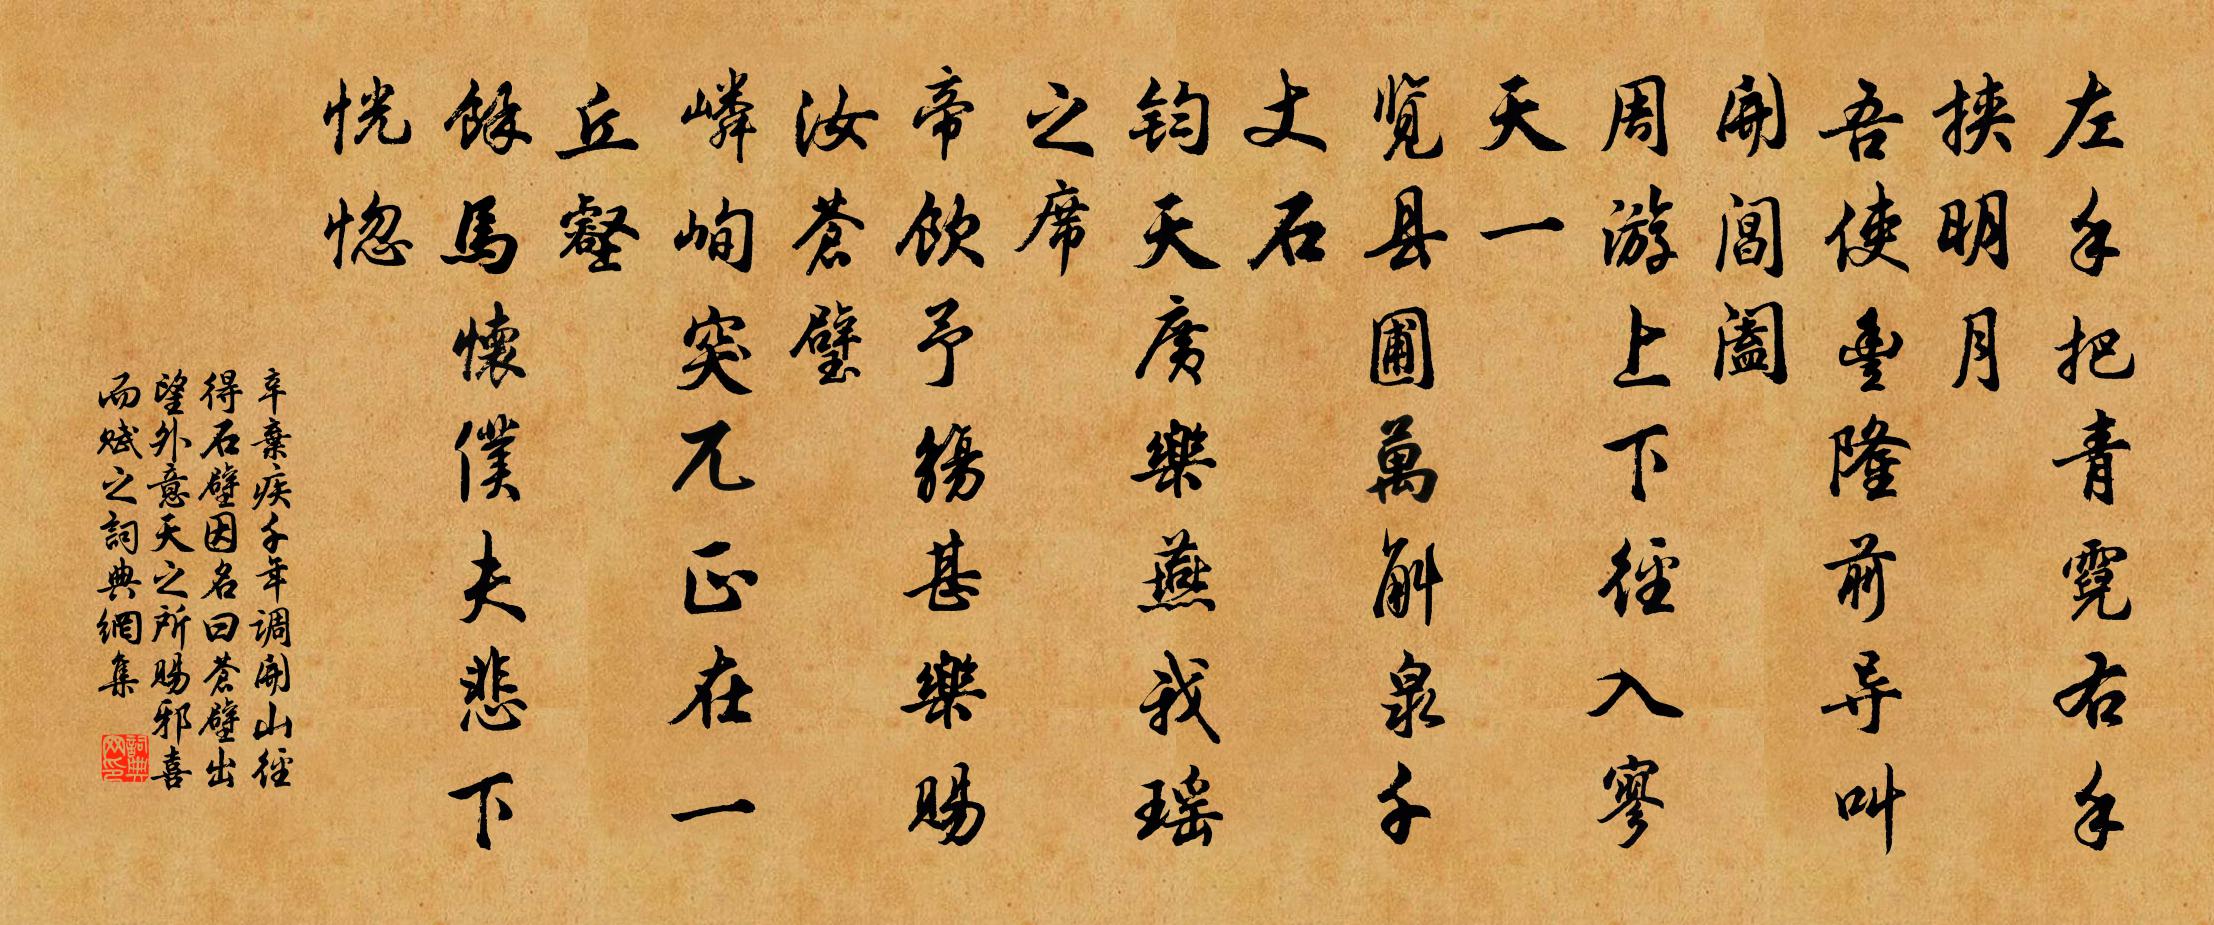 左手把青霓右手
挾明月
吾使豐隆前导叫
開閶闔
周游上下徑入寥
天一
览县圃萬斛泉千
丈石
钧天廣樂燕我瑶
之席
帝飲予觴甚樂賜
汝蒼璧
嶙峋突兀正在一
丘壑
餘馬懷僕夫悲下
恍惚
辛棄疾千年调開山徑
得石壁因名曰蒼壁出
望外意天之所賜邪喜
而赋之詞典網集
詞典
网印